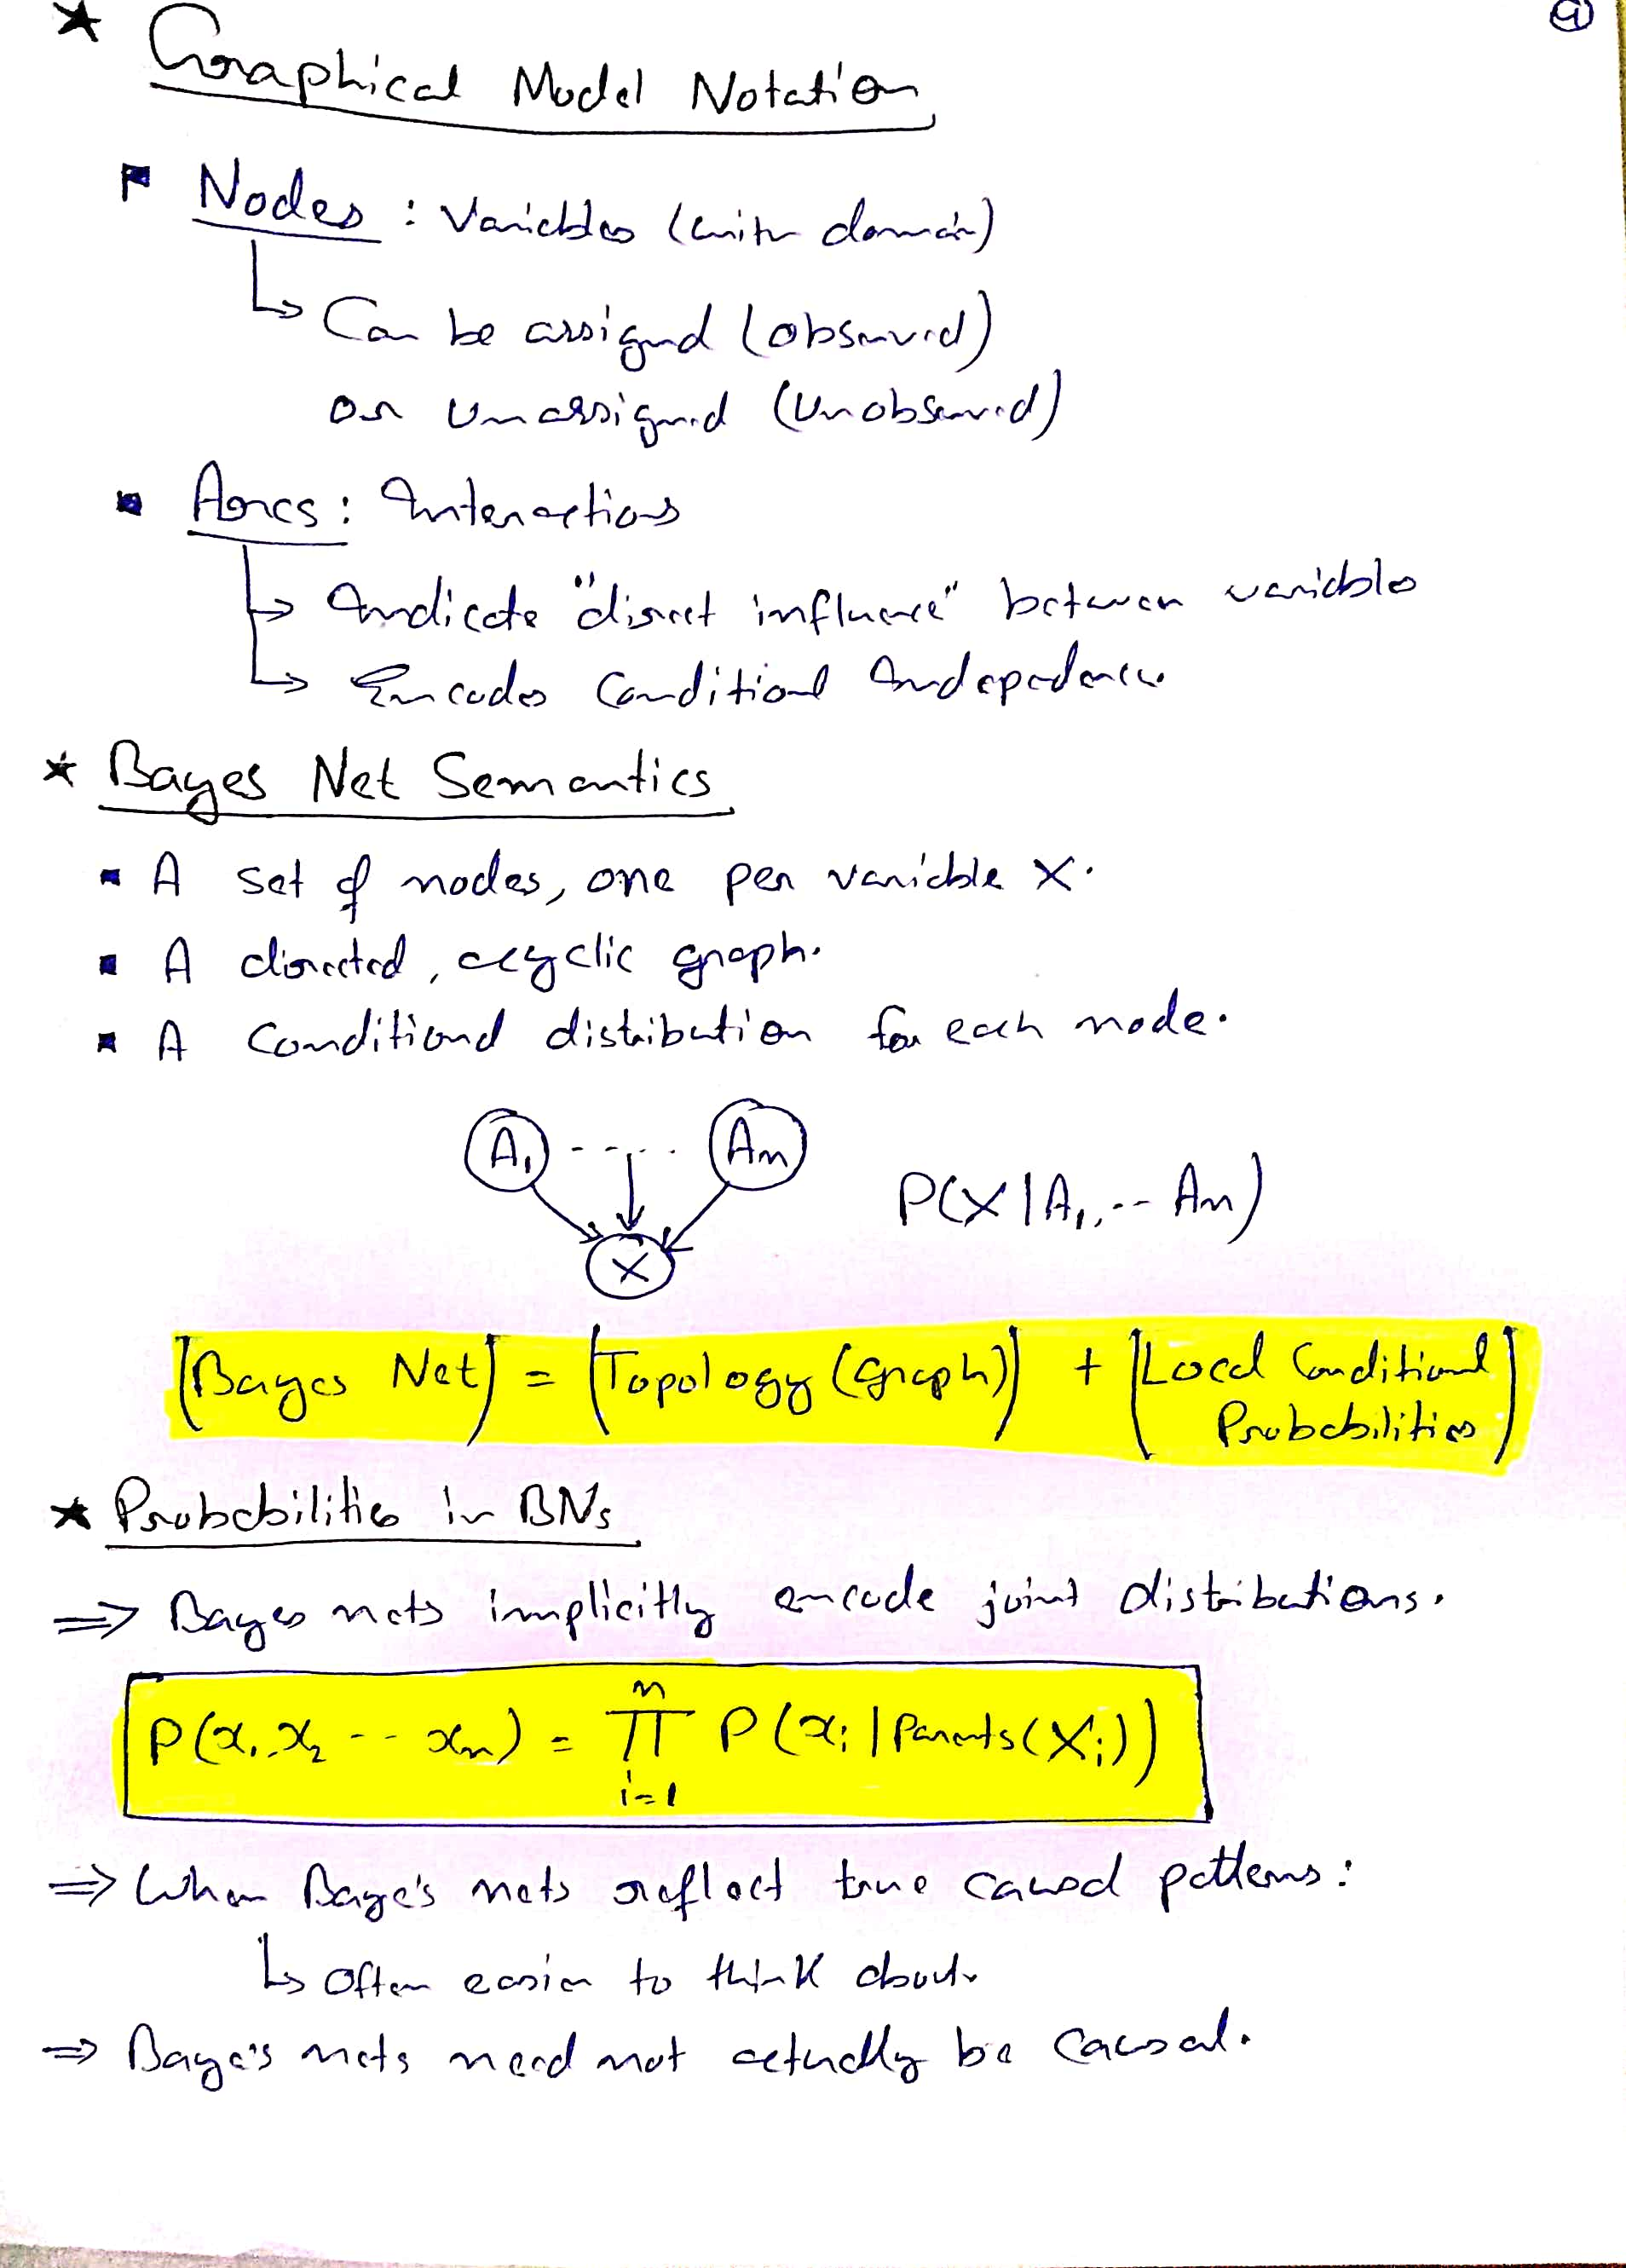 * Graphical Model Notation
Nodes : Variables (with domain)
↳ Can be assigned (observed)
or unassigned (unobserved)
Arcs : Interactions
↳ Indicate "direct influence" between variables
↳ Encodes Conditional Independence
* Bayes Net Semantics
▪ A set of nodes, one per variable X.
▪ A directed, acyclic graph.
▪ A conditional distribution for each node.
A₁ - - - . An
P(X | A₁, -- An)
X
[Bayes Net] = [Topology (graph)] + [Local Conditional
Probabilities]
* Probabilities in BNs
⇒ Bayes nets implicitly encode joint distributions.
n
P(x₁, x₂ -- xn) = Π P(xi | Parents(Xi))
i=1
⇒ When Baye's nets reflect true causal patterns :
↳ Often easier to think about.
⇒ Baye's nets need not actually be causal.